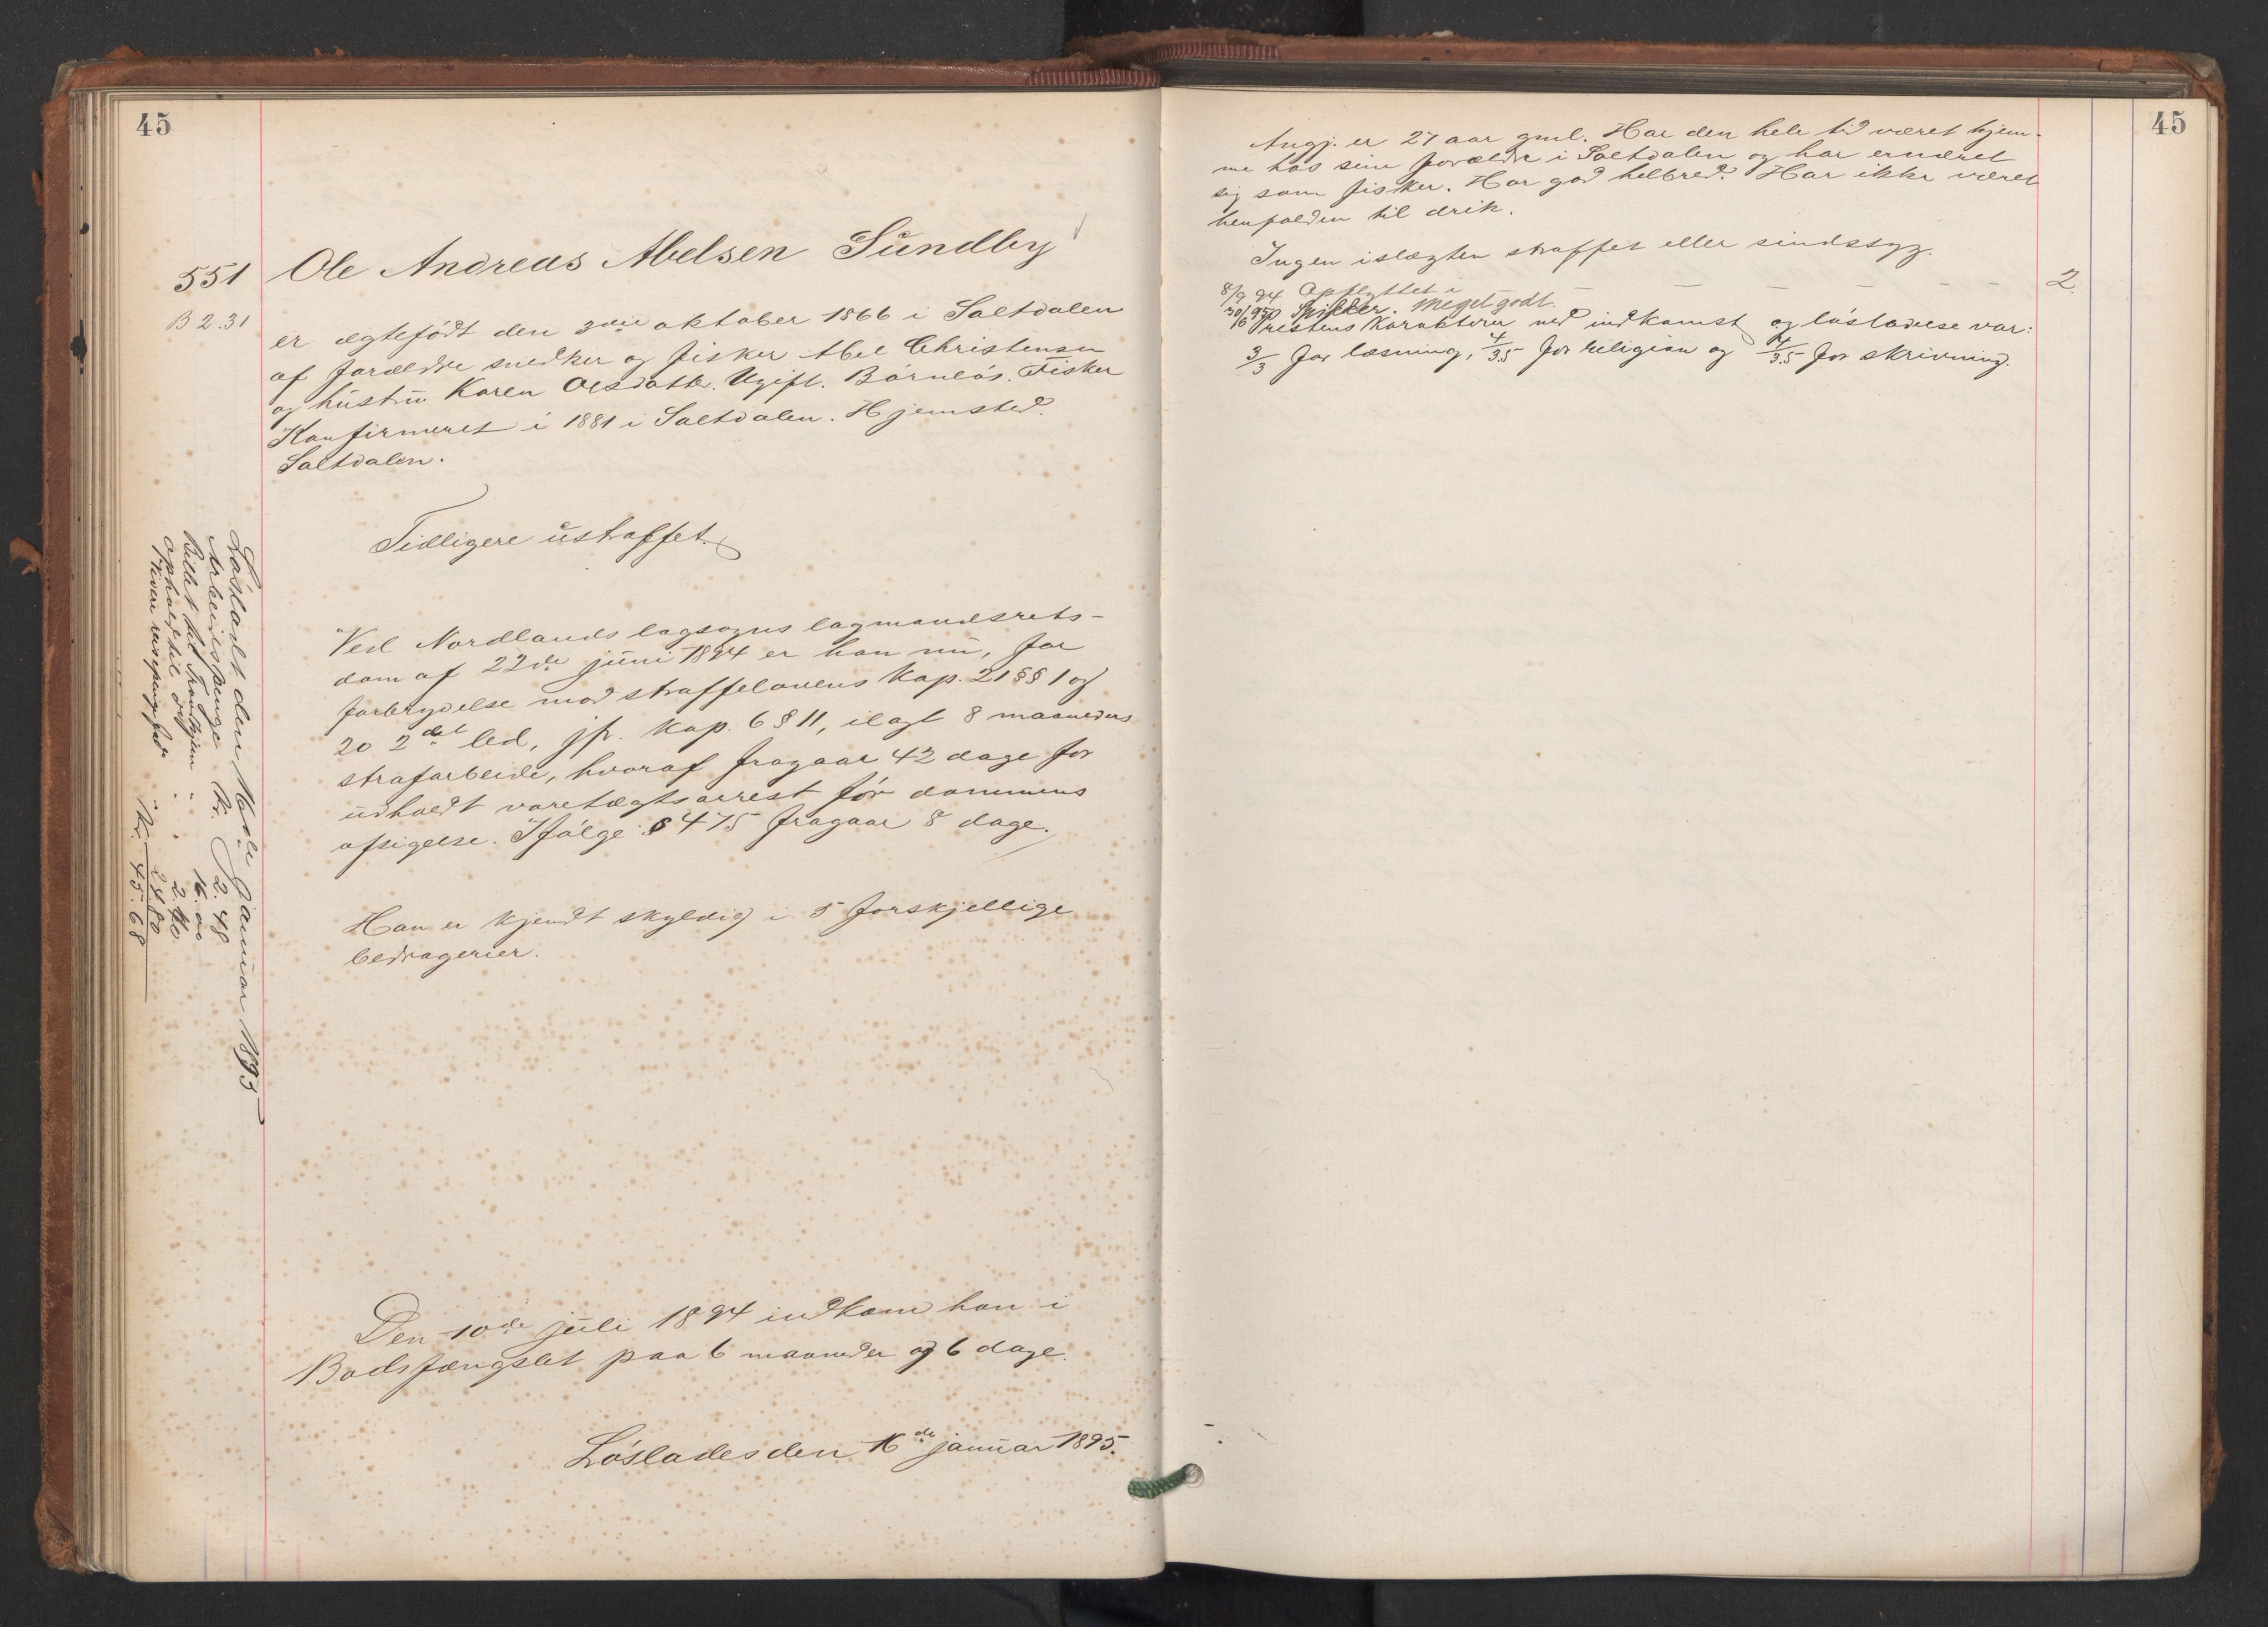 45
551
B 2.31
Ole Andreas Abelsen Sundby
er ægtefödt den 3die oktober 1866 i Saltdalen
af forældre snedker og fisker Abel Christensen
og hustru Karen Olsdatter. Ugift. Börnlös. Fisker
Konfirmeret i 1881 i Saltdalen. Hjemsted.
Saltdalen.
Tidligere ustraffet.
Ved Nordlands lagsogns lagmandsrets-
dom af 22de juni 1894 er han nu, for
forbrydelse mod straffelovens Kap. 21 §§ 1 og
20 2det led, jfr. Kap. 6 § 11, ilagt 8 maaneders
strafarbeide, hvoraf fragaar 42 dage for
udholdt varetægtsarrest för dommens
afsigelse. Ifölge § 475 fragaar 8 dage.
Han er kjendt skyldig i 5 forskjellige
bedragerier.
Den 10de juli 1894 indkom han i
Bodsfængslet paa 6 maaneder og 6 dage.
Löslades den 16de januar 1895.
Lösladt den 16de Januar 1895
Arbeidspenge Kr. 2.48
Billet til Trondhjem " 16.00
Ophold til do " 2.40
Videre reisepenge " 24.80
Kr. 45.68
45
Angj. er 27 aar gml. Har den hele tid været hjem-
me hos sine forældre i Saltdalen og har ernæret
sig som fisker. Har god helbred. Har ikke været
henfalden til drik.
Ingen i slægten straffet eller sindssyg.
8/9 94 Opflyttet i
2.
Spikker. Meget godt.
Prestens Karakterer ved indkomst og lösladelse var:
3/3 for læsning, 4/3.5 for religion og 4/3.5 for skrivning.